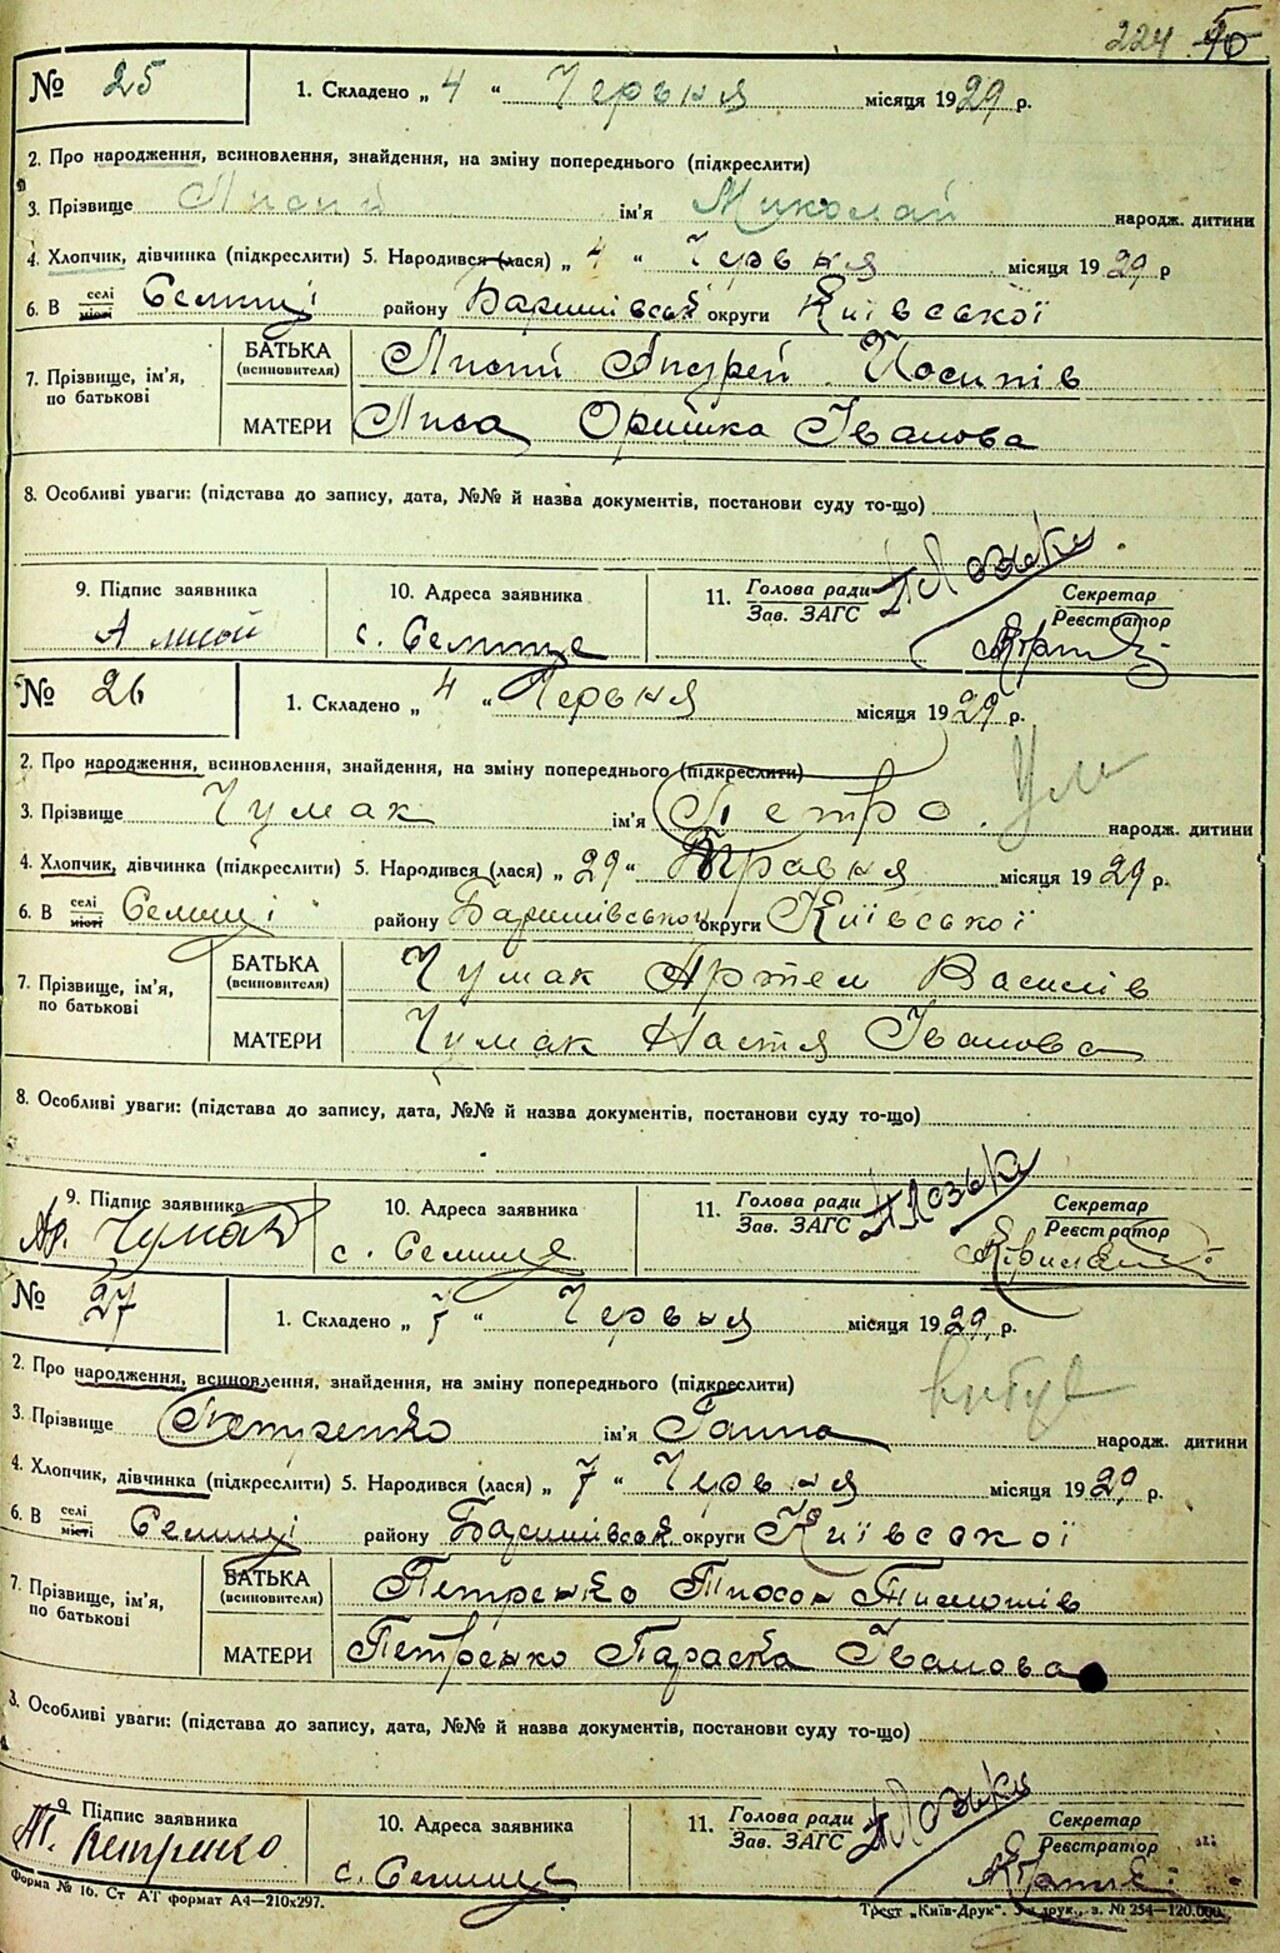 224 40
№ 25 1. Складено „ 4 “ Червня місяця 1929 р.
2. Про народження, всиновлення, знайдення, на зміну попереднього (підкреслити)
3. Прізвище Лисий ім'я Миколай народж. дитини
4. Хлопчик, дівчинка (підкреслити) 5. Народився (лася) „ 4 “ Червня місяця 1929 р
6. В селі місті Селищі району Баришівськ округи Київської
7. Прізвище, ім'я, по батькові
БАТЬКА (всиновителя) Лисий Андрей Йосипів
МАТЕРИ Лиса Оришка Іванова
8. Особливі уваги: (підстава до запису, дата, №№ й назва документів, постанови суду то-що)
9. Підпис заявника 10. Адреса заявника 11. Голова ради Зав. ЗАГС Секретар Реєстратор
А Лисой с. Селище
№ 26 1. Складено „ 4 “ Червня місяця 1929 р.
2. Про народження, всиновлення, знайдення, на зміну попереднього (підкреслити)
3. Прізвище Чумак ім'я Петро. народж. дитини
4. Хлопчик, дівчинка (підкреслити) 5. Народився (лася) „ 29 “ Травня місяця 1929 р.
6. В селі місті Селищі району Баришівської округи Київської
7. Прізвище, ім'я, по батькові
БАТЬКА (всиновителя) Чумак Артем Василів
МАТЕРИ Чумак Настя Іванова
8. Особливі уваги: (підстава до запису, дата, №№ й назва документів, постанови суду то-що)
9. Підпис заявника 10. Адреса заявника 11. Голова ради Зав. ЗАГС Секретар Реєстратор
Ар. Чумак с. Селище
№ 27 1. Складено „ 7 “ Червня місяця 1929 р.
2. Про народження, всиновлення, знайдення, на зміну попереднього (підкреслити)
вибув
3. Прізвище Петренко ім'я Ганна народж. дитини
4. Хлопчик, дівчинка (підкреслити) 5. Народився (лася) „ 7 “ Червня місяця 1929 р.
6. В селі місті Селищі району Баришівськ округи Київської
7. Прізвище, ім'я, по батькові
БАТЬКА (всиновителя) Петренко Тихон Тимошів
МАТЕРИ Петренко Параска Іванова
8. Особливі уваги: (підстава до запису, дата, №№ й назва документів, постанови суду то-що)
9 Підпис заявника 10. Адреса заявника 11. Голова ради Зав. ЗАГС Секретар Реєстратор
Т. Петренко с. Селище
Форма № 16. Ст АТ формат А4—210х297.
Трест „Київ-Друк“. друк., з. № 254—120.000.